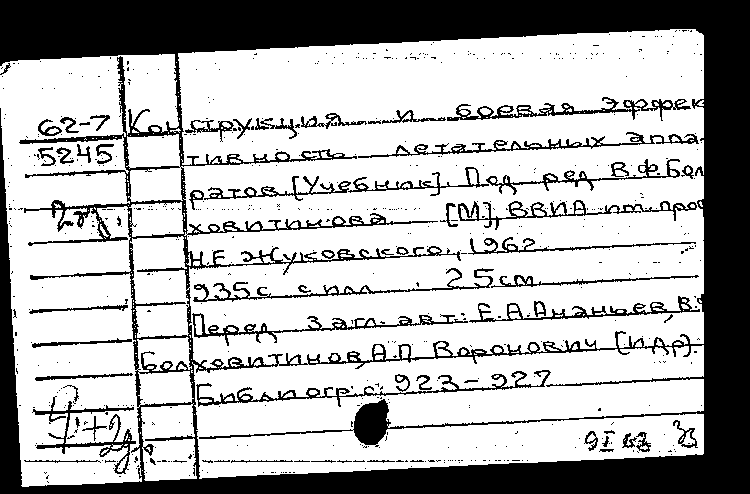 62-7 Конструкция и боевая эффек
5245 тивность летательных аппа-
ратов. [Учебник]. Под ред В.Ф.Бол
ховитинова [М], ВВИА им. проф
Н.Е Жуковского, 1962
935с с илл. 25см
Перед загл. авт: Е.А.Ананьев, В.Ф
Болховитинов, А.П Воронович [и др].
Библиогр: с 923-927